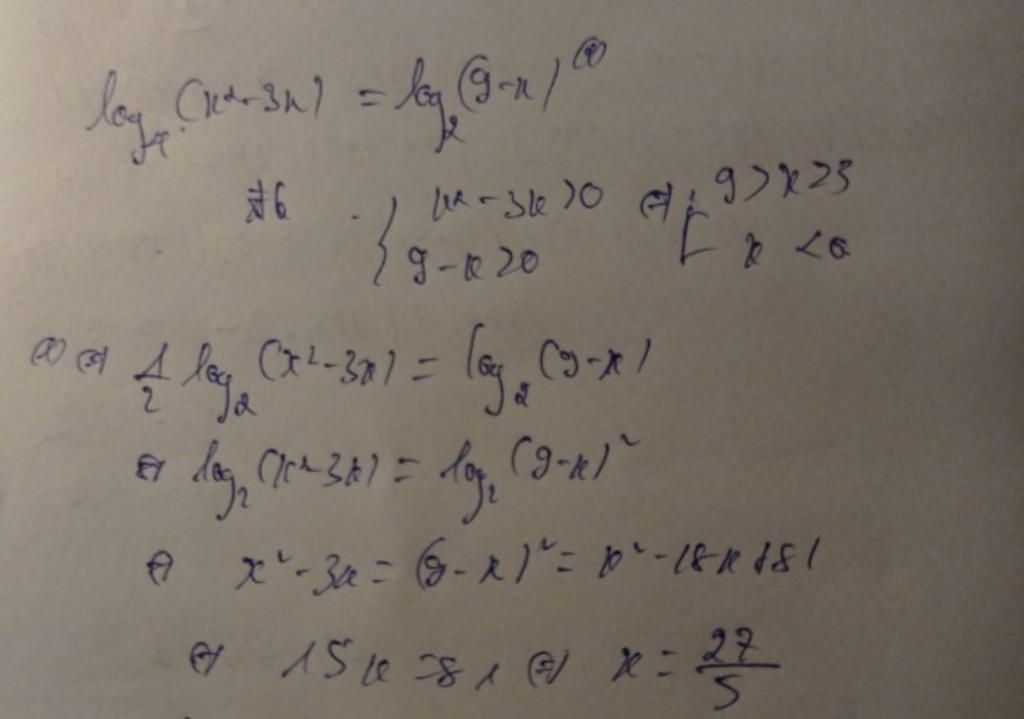 log₄(x²-3x) = log₂(9-x) (*)
x²-3x>0 ⇔ 9>x>3
9-x>0 x<0
(*) ⇔ 1/2 log₂(x²-3x) = log₂(9-x)
⇔ log₂(x²-3x) = log₂(9-x)²
⇔ x²-3x = (9-x)² = x²-18x+81
⇔ 15x=81 ⇔ x = 27/5